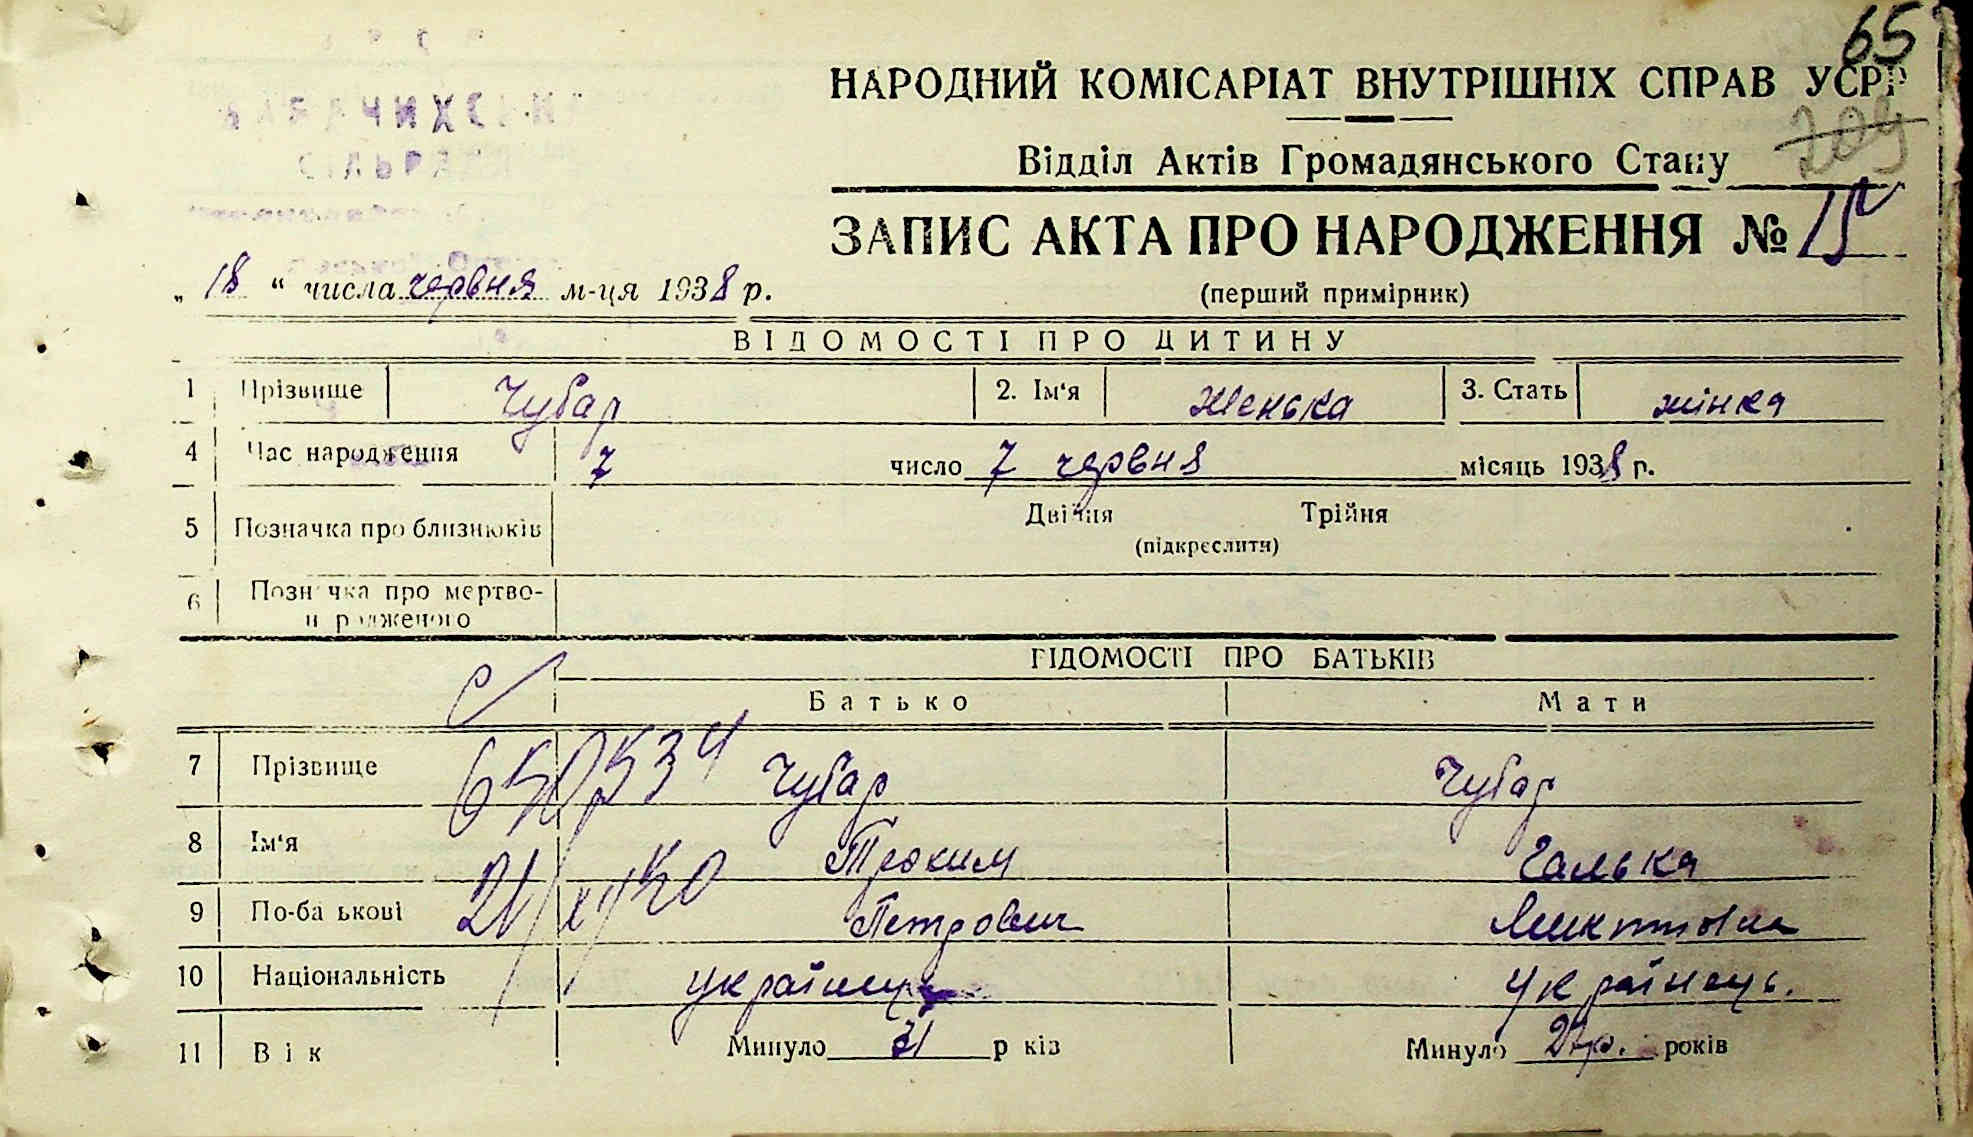 65
НАРОДНИЙ КОМІСАРІАТ ВНУТРІШНІХ СПРАВ УСРР
209
Відділ Актів Громадянського Стану
ЗАПИС АКТА ПРО НАРОДЖЕННЯ №
„ 18 “ числа червня м-ця 1938 р.
(перший примірник)
ВІДОМОСТІ ПРО ДИТИНУ
1 Прізвище Чубар 2. Ім‘я Женька 3. Стать жінка
4 Час народження 7 число 7 червня місяць 1938 р.
5 Позначка про близнюків Двійня Трійня
(підкреслити)
6 Позначка про мертво-
народженого
ВІДОМОСТІ ПРО БАТЬКІВ
Батько Мати
7 Прізвище Чубар Чубар
8 Ім‘я Трохим Галька
9 По-батькові Петрович Микитовна
10 Національність українець українець.
11 Вік Минуло 31 років Минуло 27 р. років